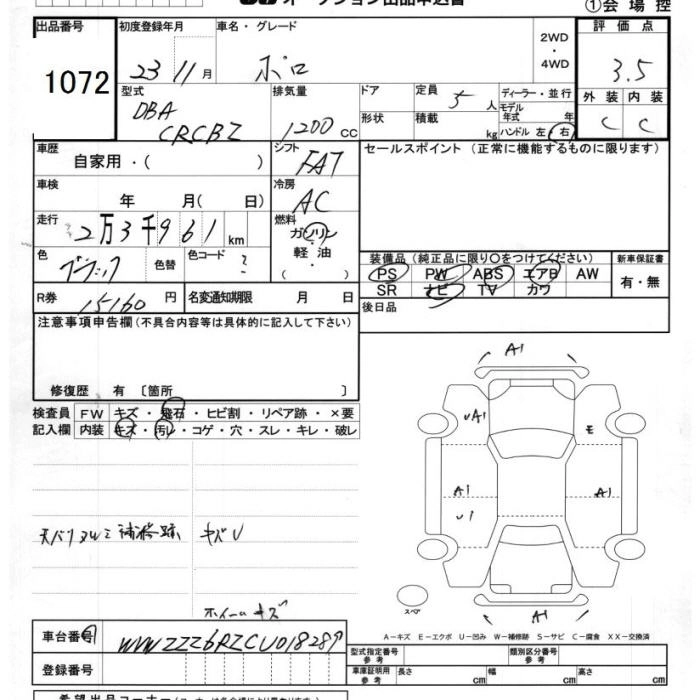 オークション出品申込書 ①会場控
出品番号 初度登録年月 車名・グレード 2WD・4WD 評価点
1072 23 11月 ポロ 3.5
型式 排気量 ドア 定員 ディーラー・並行 外装 内装
DBA 5人 モデル年式 年 C C
1200cc 形状 積載 kg ハンドル 左・右
車歴 シフト セールスポイント (正常に機能するものに限ります)
自家用・( ) FAT
車検 冷房
年 月(日) AC
走行 燃料
2万3千961km ガソリン
軽油
・( )
色 色替 色コード
ブラック
装備品 (純正品に限り〇をつけてください) 新車保証書
PS PW ABS エアB AW 有・無
SR ナビ TV カワ
R券 15160円 名変通知期限 月 日 後日品
注意事項申告欄 (不具合内容等は具体的に記入して下さい)
修復歴 有 〔箇所 〕
検査員 FW キズ・飛石・ヒビ割・リペア跡・×要
記入欄 内装 キズ・汚レ・コゲ・穴・スレ・キレ・破レ
A1
UA1 E
A1 A1
U1
補修跡 キズU
ホイールキズ
スペア
A1
A-キズ E-エクボ U-凹み W-補修跡 S-サビ C-腐食 XX-交換済
車台番号 WVWZZZ6RZCU018289
登録番号
型式指定番号 参考 類別区分番号 参考
車庫証明用 参考 長さ cm 幅 cm 高さ cm